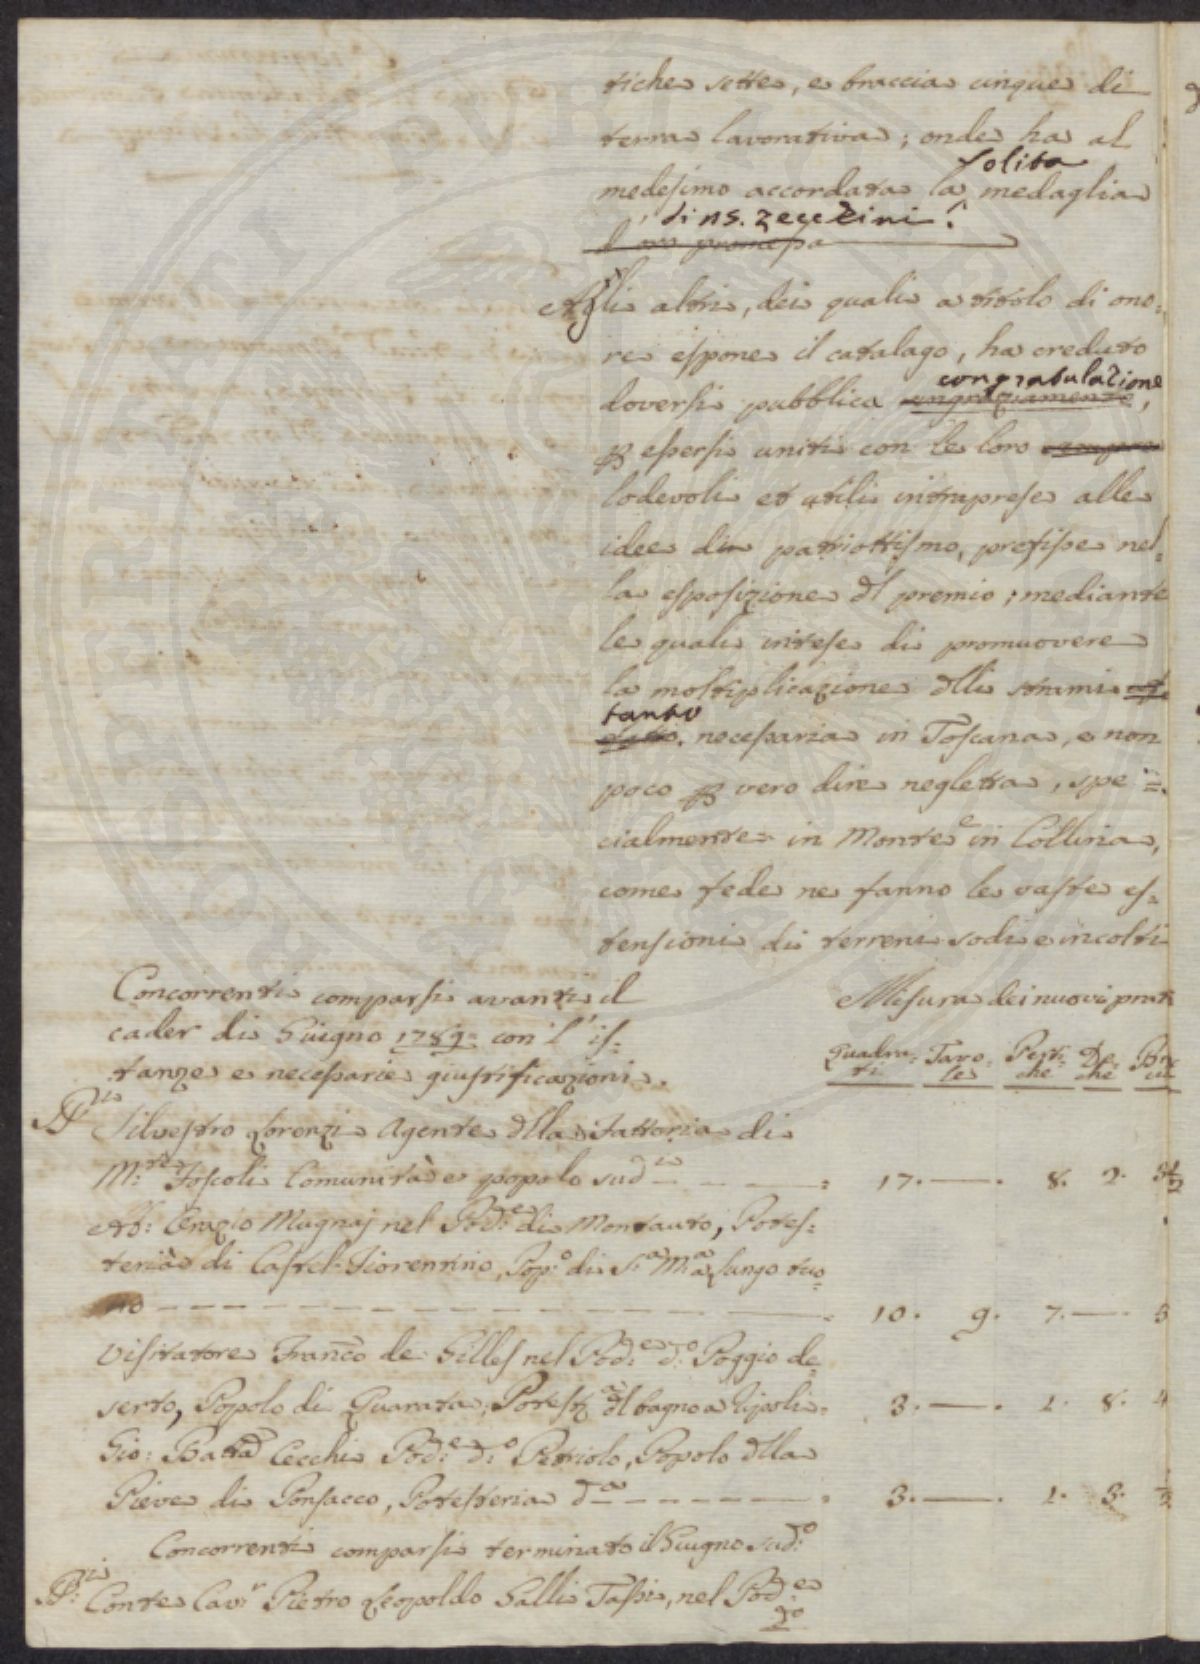 tiche sette, e braccia cinque di
terra lavorativa; onde ha al
solita
medesimo accordata la medaglia
di ns. zecchini.
d'oro promessa
Agli altri, dei quali a titolo di ono:
re espone il catalago, ha creduto
congratulazione
doversi pubblica ringraziamento,
p essersi uniti con le loro
lodevoli et utili intraprese alle
idee di patriottismo, prefisse nel:
la esposizione dl premio; mediante
le quali intese di promuovere
la moltiplicazione dlli strami
tanto
necessaria in Toscana, e non
poco p vero dire negletta, spe=
cialmente in Monte e in Collina,
come fede ne fanno le vaste es:
tensioni di terreni sodi e incolti
Concorrenti comparsi avanti il
cader di Giugno 1789 con l'is:
tanze e necessarie giustificazioni.
Misura dei nuovi prati
Quadra:ti Tavo:le Perti:che De:che Brac:cia
Silvestro Lorenzi Agente dlla Fattoria di
M:te Foscoli Comunità e popolo sud 17. — . 8. 2. 3½
Ab: Orazio Mugnaj nel Pod:e di Montauto, Potes:
teria di Castel Fiorentino, Pop:o di S:a M:a Lungo tuo
no 10. 9. 7. — . 5
Visitatore Franco de Gilles nel Pod:e d:o Poggio de
serto, Popolo di Quarata, Potest dl bagno a Ripoli 3. — . 1. 8. 4
Gio: Batta Cecchi Pod:e d:o Petriolo, Popolo dlla
Pieve di Ponsacco, Potesteria d:a 3. — . 1. 3. ½
Concorrenti comparsi terminato il Giugno sud:o
Conte Cav:r Pietro Leopoldo Galli Tassi, nel Pod:e
d:o